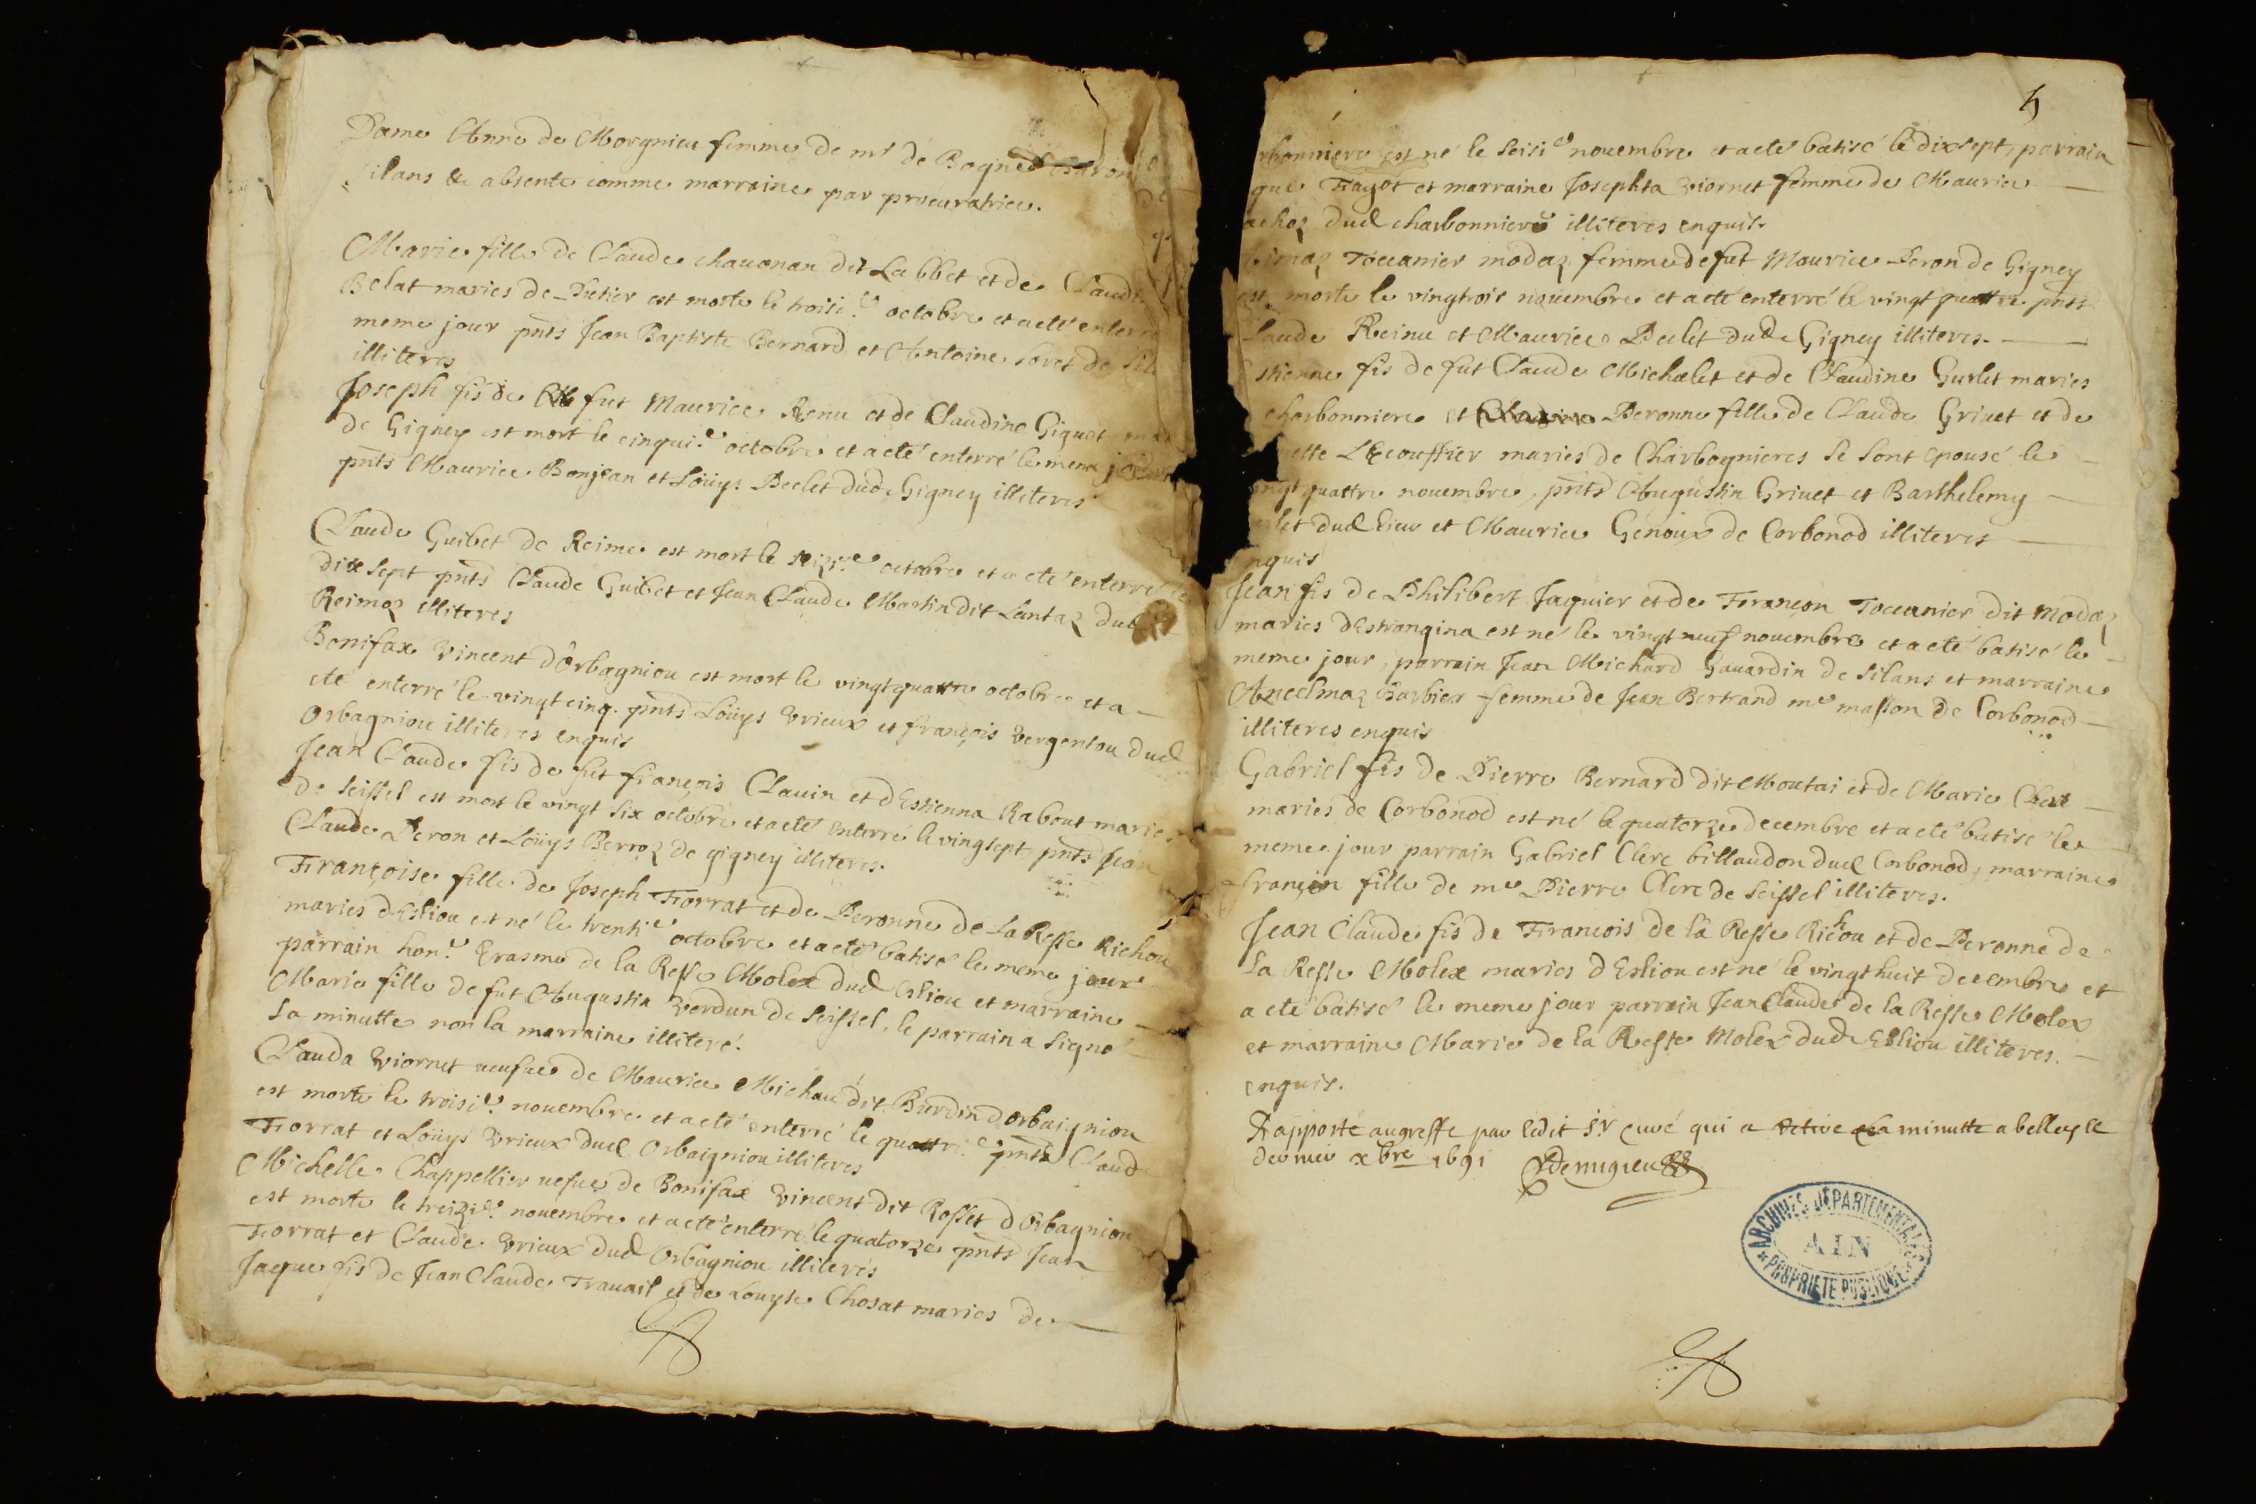 Dame Anne de Morgnieu femme de mr de Bognes
silans &c absente comme marraine par procuratrice.
Marie fille de Claude chauonan dit Labbet et de Claud
Belat maries de Putier est morte le troisie octobre et a eté enterre
meme jour pnts Jean Baptiste Bernard et Antoine Soret de Sil
illiteres
Joseph fis de fut Maurice Renu et de Claudine Giguet
de Gigney est mort le cinquie octobre et a eté enterré le meme jour
pnts Maurice Bonjean et Loüys Beclet dud Gigney illiteres
Claude Guibet de Reime est mort le octobre et a eté enterré le
dix sept pnts Claude Guibet et Jean Claude Martin dit Lantaz dud
Reimaz illiteres
Bonifax Vincent d'Orbagniou est mort le vingtquattre octobre et a
eté enterré le vingt cinq. pnts Loüys Vrieux et françois Vergenlou dud
Orbagniou illiteres enquis
Jean Claude fis de fut françois Clauin et d Estienna Rabout maries
de Seissel est mort le vingt six octobre et a eté enterré le vingsept pnts Jean
Claude Peron et Loüys Berroz de gigney illiteres.
Françoise fille de Joseph Forrat et de Peronne de La Resse Richou
maries d Esliou est né le trentie octobre et a eté batisé le meme jour
parrain hon.e Erasme de la Resse Molex dud Esliou et marraine
Marie fille de fut Augustin Verdun de Seissel, le parrain a signé
la minutte non la marraine illiteré.
Clauda Viornet uefue de Maurice Michau dit Burdin d orbaigniou
est morte le troisie. nouembre et a eté enterré le quattrie. pnts Claud
Forrat et Loüys Vrieux dud Orbaigniou illiteres
Michelle Chappellier uefue de Bonifax Vincent dit Rosset d Orbagniou
est morte le treizie. nouembre et a eté enterré le quatorze pnts Jean
Forrat et Claude Vrieux dud Orbagniou illiteres
Jaque fis de Jean Claude Trauail et de Louyse Chosat maries de
5
rbonniere est né le seisie nouembre et a eté batisé le dixsept, parrain
que Fagot et marraine Josephta Viornet femme de Maurice
achoz dud charbonniere illiteres enquis
imaz Toccanier modaz femme de fut Maurice Peron de Gigney
est morte le vingtrois nouembre et a eté enterré le vingt quattre pnts
laude Reinu et Maurice Beclet dud Gigney illiteres.
stienne fis de fut Claude Michalet et de Claudine Gurlet maries
charbonniere et Peronne fille de Claude Griuet et de
ette L'Ecouffier maries de Charbognieres se sont epousé le
ngt quattre nouembre, pnts Augustin Griuet et Barthelemy
let dud lieu et Maurice Genoux de Corbonod illiteres
nquis
Jean fis de Philibert Jaquier et de Françon Toccanier dit modaz
maries d Estrangina est né le vingt neuf nouembre et a eté batisé le
meme jour, parrain Jean Michard Gauardin de silans et marraine
Ancelmaz Barbier femme de Jean Bertrand me masson de Corbonod
illiteres enquis
Gabriel fis de Pierre Bernard dit Moutai et de Marie Clert
maries de Corbonod est né le quatorze decembre et a eté batisé le
meme jour parrain Gabriel Clerc billaudon dud Corbonod, marraine
françon fille de me Pierre Clerc de Seissel illiteres.
Jean Claude fis de François de la Resse Richou et de Peronne de
La Resse Molex maries d Esliou est né le vingt huit decembre et
a eté batisé le meme jour parrain Jean Claude de la Resse Molex
et marraine Marie de la Resse Molex dud Esliou illiteres.
enquis.
Rapporté au greffe par ledit Sr curé qui a retiré la minutte a belley le
dernier xbre 1691 Demigieu
ARCHIVES DEPARTEMENTALES
AIN
PROPRIETE PUBLIQUE